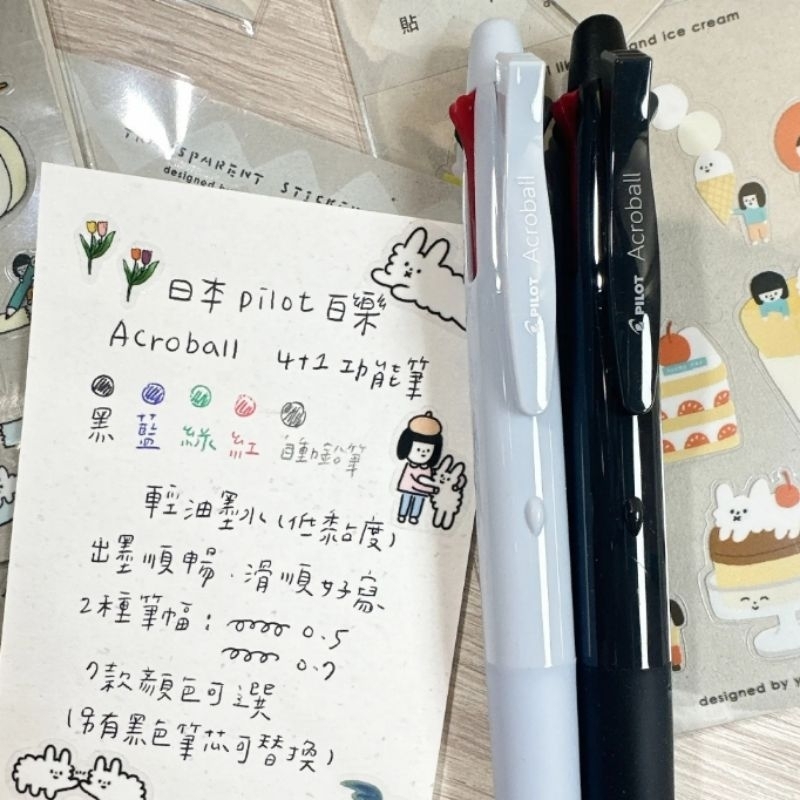 貼
and ice cream
TRANSPARENT STICKER
designed by
日本 pilot 百樂
Acroball 4+1 功能筆
黑 藍 綠 紅 自動鉛筆
輕油墨水(低黏度)
出墨順暢.滑順好寫
2種筆幅: 0.5
0.7
7款顏色可選
(另有黑色筆芯可替換)
PILOT Acroball
PILOT Acroball
designed by